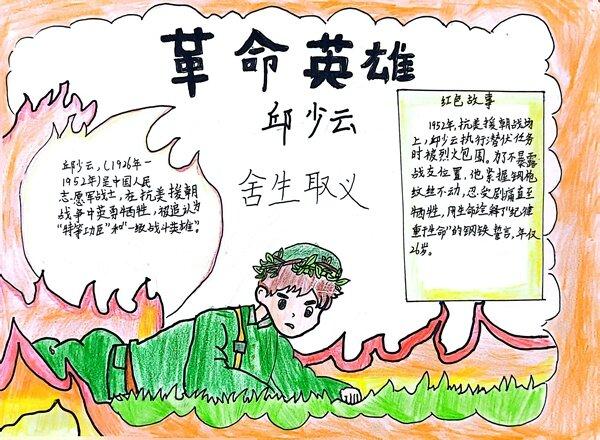 革命英雄
邱少云
舍生取义
邱少云,(1926年-
1952年)是中国人民
志愿军战士,在抗美援朝
战争中英勇牺牲,被追认为
“特等功臣”和“一级战斗英雄”。
红色故事
1952年,抗美援朝战场
上,邱少云执行潜伏任务
时被烈火包围。为了不暴露
战友位置,他紧握钢枪
纹丝不动,忍受剧痛直至
牺牲,用生命诠释了“纪律
重于生命”的钢铁誓言,年仅
26岁。